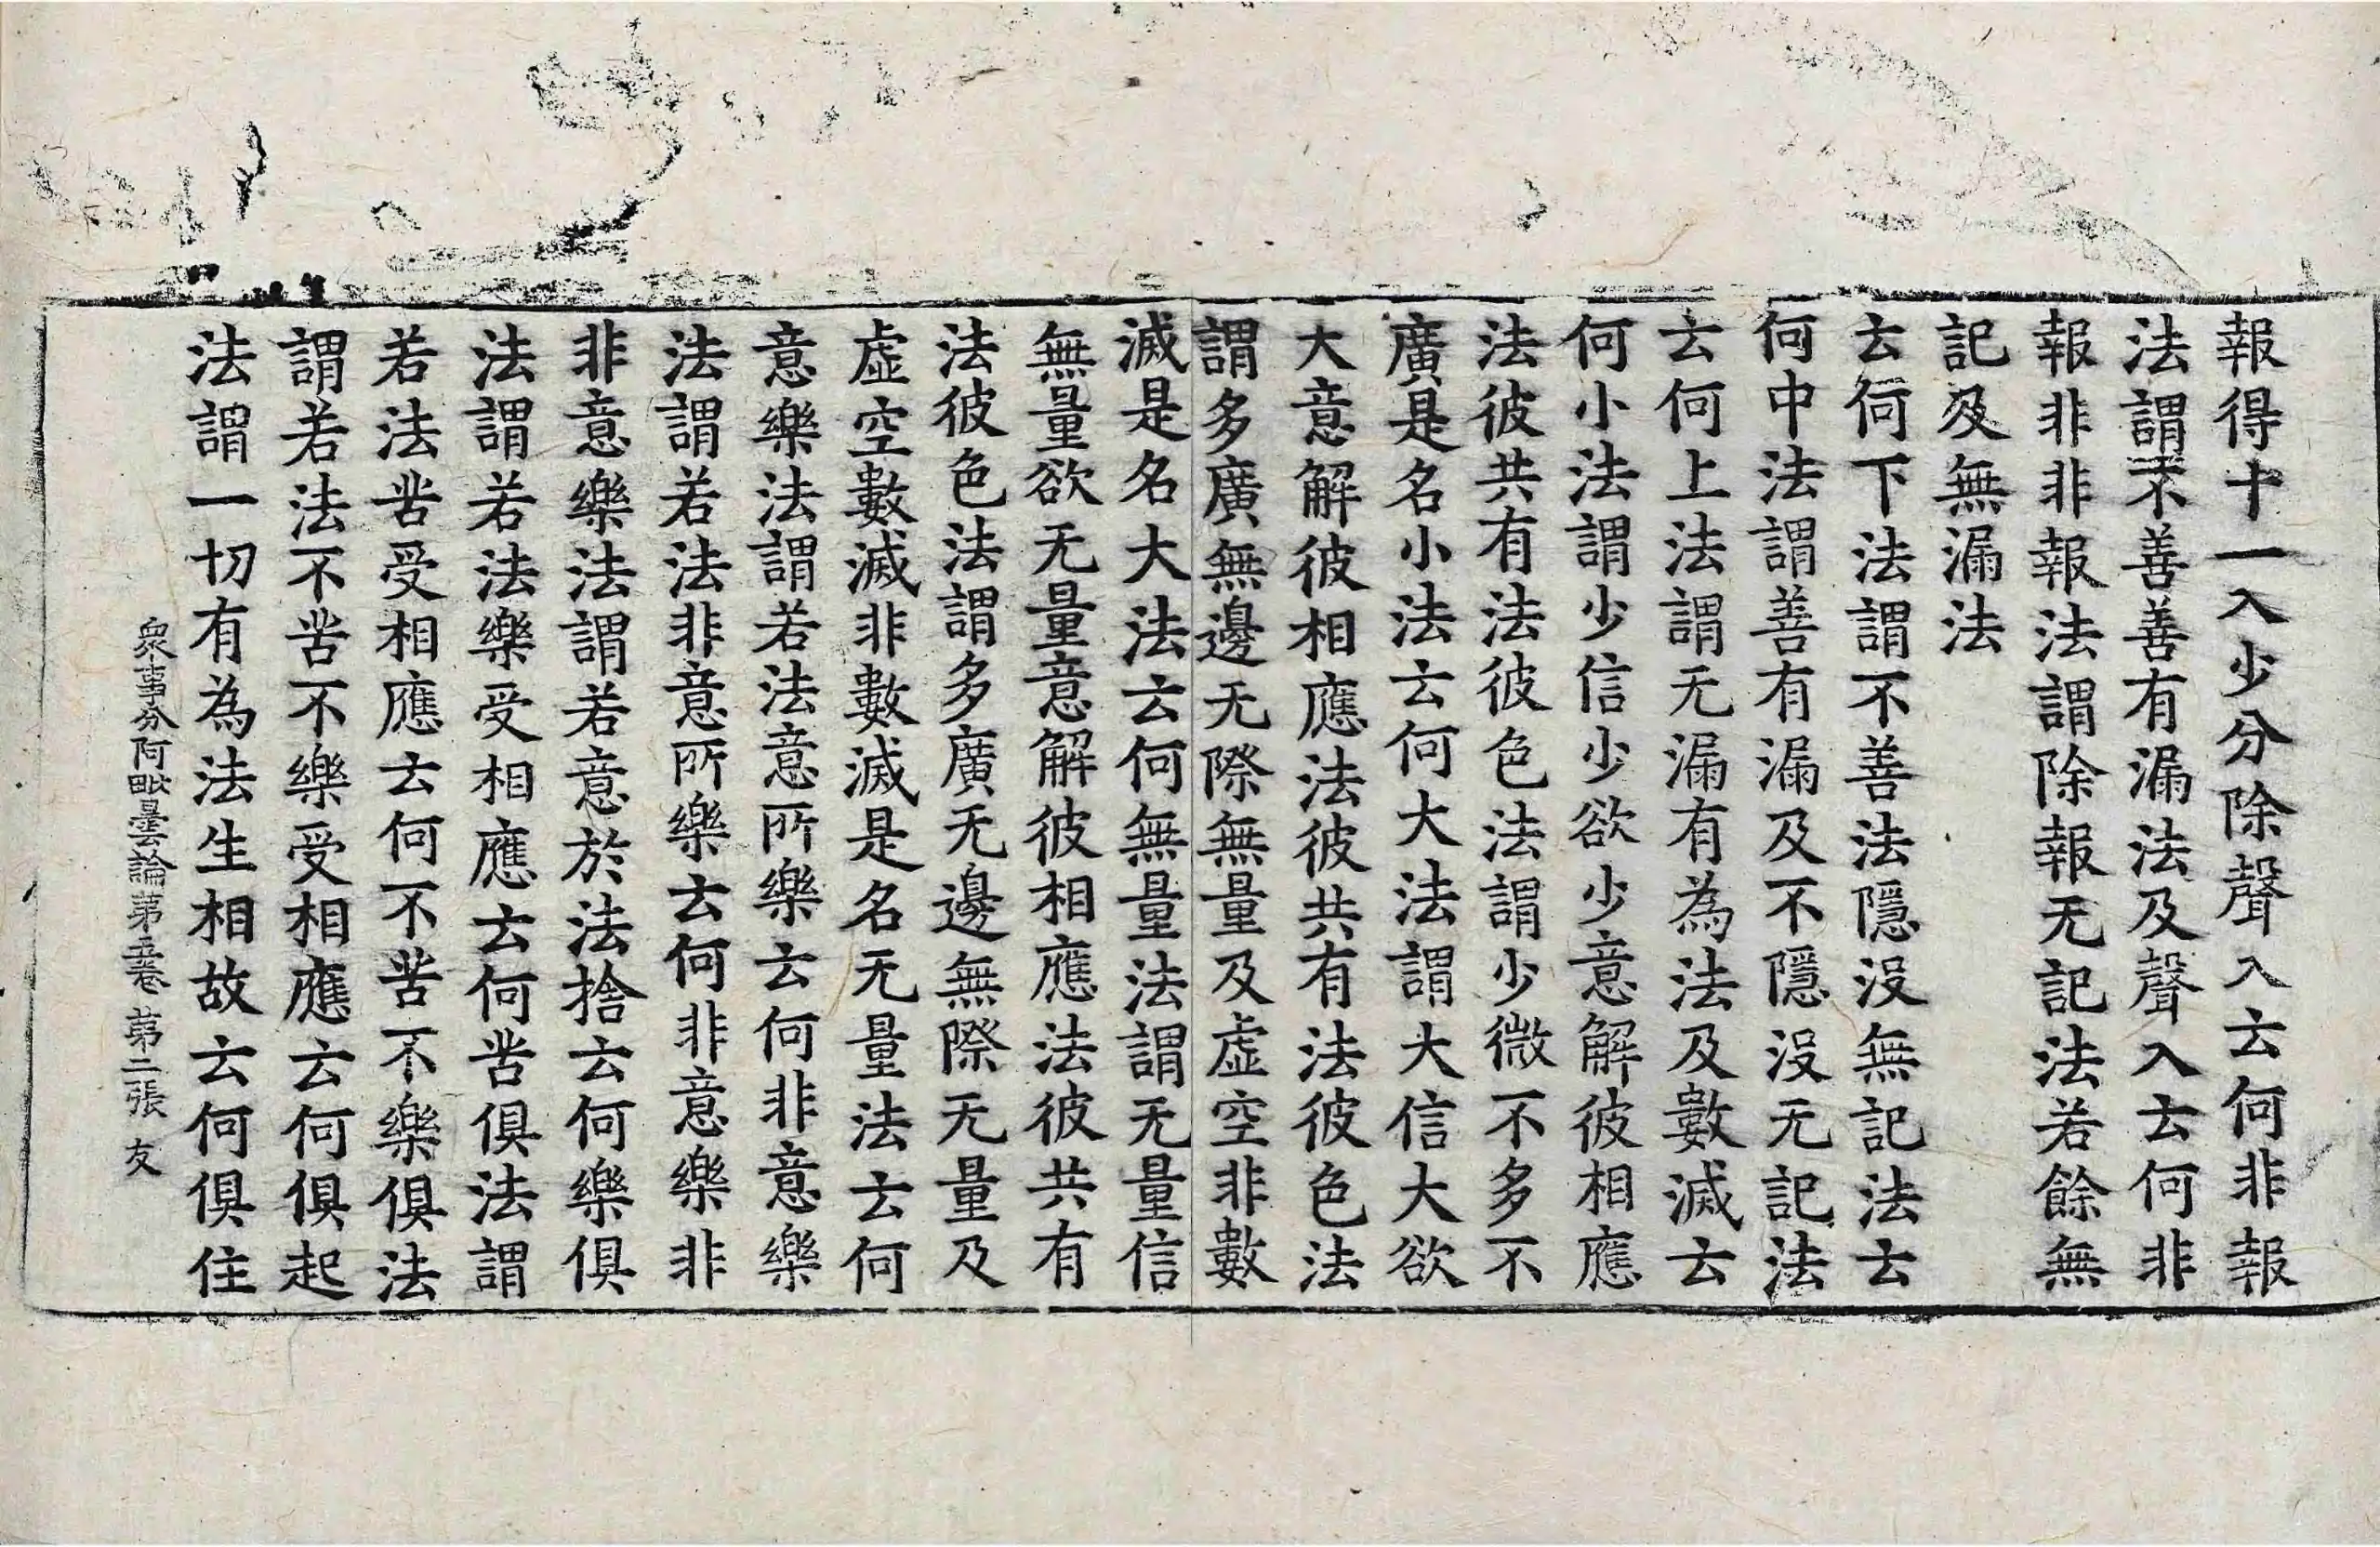 報得十一入少分除聲入云何非報
法謂不善善有漏法及聲入云何非
報非非報法謂除報无記法若餘無
記及無漏法
云何下法謂不善法隱沒無記法云
何中法謂善有漏及不隱沒无記法
云何上法謂无漏有為法及數滅云
何小法謂少信少欲少意解彼相應
法彼共有法彼色法謂少少微不多不
廣是名小法云何大法謂大信大欲
大意解彼相應法彼共有法彼色法
謂多廣無邊无際無量及虛空非數
滅是名大法云何無量法謂无量信
無量欲无量意解彼相應法彼共有
法彼色法謂多廣无邊無際无量及
虛空數滅非數滅是名无量法云何
意樂法謂若法意所樂云何非意樂
法謂若法非意所樂云何非意樂非
非意樂法謂若意於法捨云何樂俱
法謂若法樂受相應云何苦俱法謂
若法苦受相應云何不苦不樂俱法
謂若法不苦不樂受相應云何俱起
法謂一切有為法生相故云何俱住
衆事分阿毗曇論第五卷 第二張 友